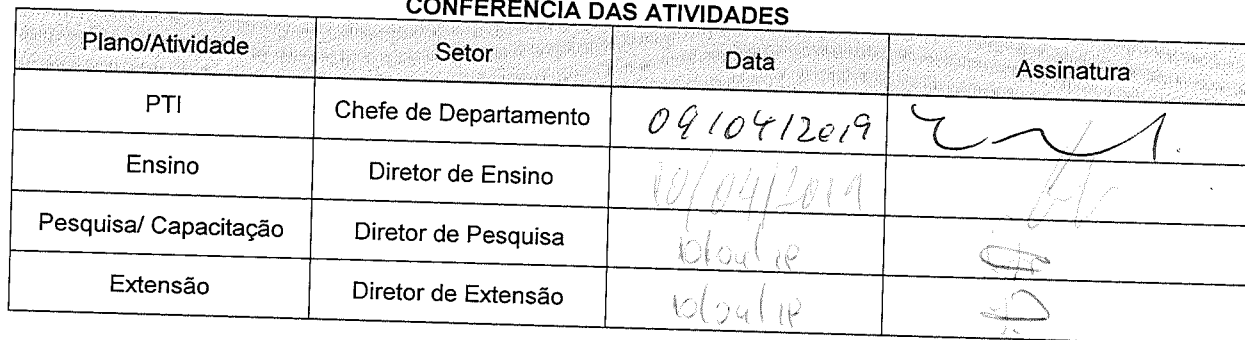 CONFERÊNCIA DAS ATIVIDADES
Plano/Atividade Setor Data Assinatura
PTI Chefe de Departamento 09/04/2019
Ensino Diretor de Ensino 10/04/2019
Pesquisa/ Capacitação Diretor de Pesquisa 10/04/19
Extensão Diretor de Extensão 10/04/19